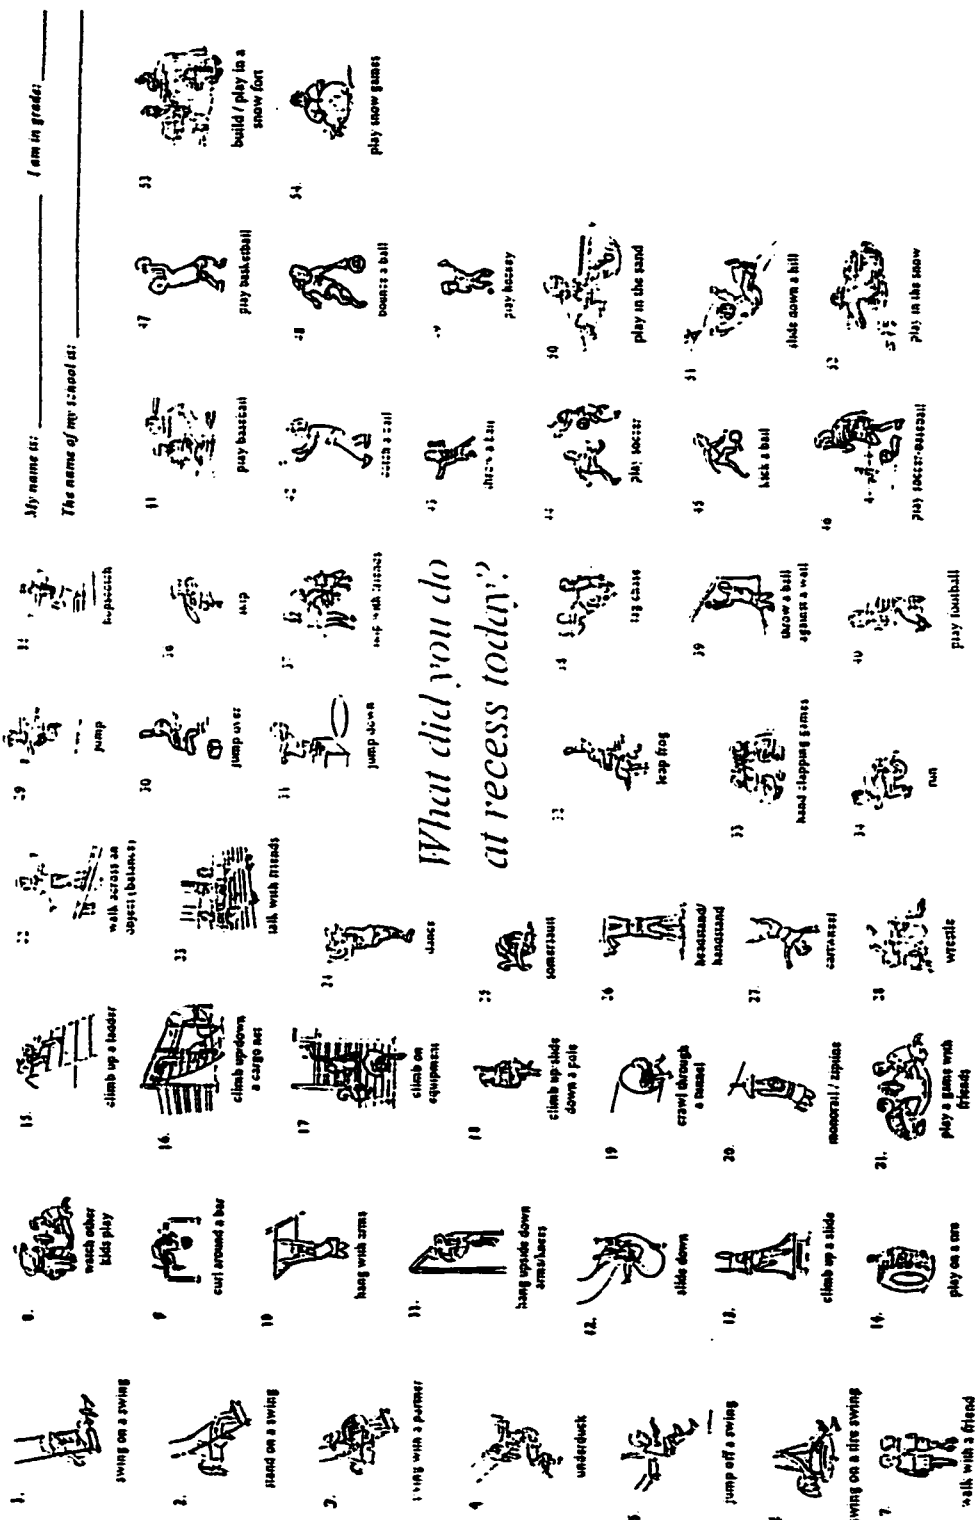 My name is: I am in grade:
The name of my school is:
What did you do
at recess today?
1.
swing on a swing
2.
stand on a swing
3.
swing with a partner
4
underduck
5.
jump off a swing
swing on a tire swing
7.
walk with a friend
8.
watch other
kids play
9
curl around a bar
10
hang with arms
11.
hang upside down
arms/knees
12.
slide down
13.
climb up a slide
14.
play on a tire
15.
climb up a ladder
16.
climb up/down
a cargo net
17
climb on
equipment
18
climb up/slide
down a pole
19
crawl through
a tunnel
20.
monorail / zipline
21.
play a game with
friends
22
walk across an
object (balance)
23
talk with friends
24
dance
25
somersault
26
headstand/
handstand
27.
cartwheel
28
wrestle
29
jump
30
jump over
31
jump down
32
leap frog
33
hand clapping games
34
run
35
hopscotch
36
skip
37
skip with friends
38
tag chase
39
throw a ball
against a wall
40
play football
41
play baseball
42
catch a ball
43
throw a ball
44
play soccer
45
kick a ball
46
play soccer-baseball
47
play basketball
48
bounce a ball
49
play hockey
50
play in the sand
51
slide down a hill
52
play in the snow
53
build / play in a
snow fort
54.
play snow games